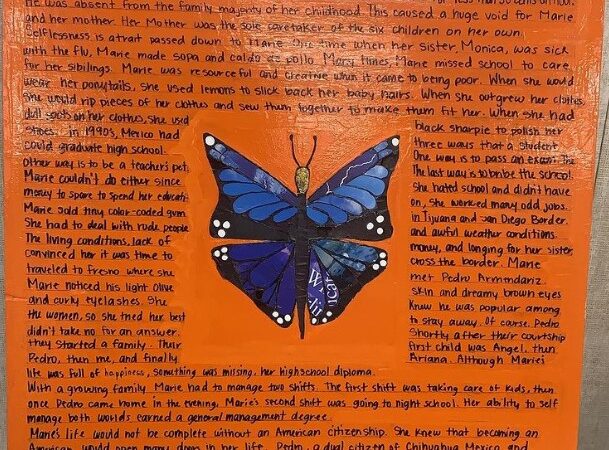 He was absent from the family majority of her childhood. This caused a huge void for Marie
and her mother. Her Mother was the sole caretaker of the six children on her own.
Selflessness is a trait passed down to Marie. One time when her sister, Monica, was sick
with the flu, Marie made sopa and caldo de pollo. Many times, Marie missed school to care
for her siblings. Marie was resourceful and creative when it came to being poor. When she would
wear her ponytails, she used lemons to slick back her baby hairs. When she outgrew her clothes,
She would rip pieces of her clothes and sew them together to make them fit her. When she had
dull spots on her clothes, she used black sharpie to polish her
shoes. in 1990s, Mexico had three ways that a student
could graduate high school. One way is to pass an exam. The
other way is to be a teacher's pet. The last way is to bribe the school.
Marie couldn't do either since She hated school and didn't have
money to spare to spend her educati- on, she worked many odd jobs.
Marie sold tiny color-coded gum in Tijuana and San Diego Border.
She had to deal with rude people and awful weather conditions.
The living conditions, lack of money, and longing for her sister
convinced her it was time to cross the border. Marie
traveled to Fresno where she met Pedro Armmdariz.
Marie noticed his light olive skin and dreamy brown eyes
and curly eyelashes. She knew he was popular among
the women, so she tried her best to stay away. Of course, Pedro
didn't take no for an answer. Shortly after their courtship
they started a family. Their first child was Angel, then
Pedro, then me, and finally Ariana. Although Marie's
life was full of happiness, something was missing, her highschool diploma.
With a growing family, Marie had to manage two shifts. The first shift was taking care of kids, then
once Pedro came home in the evening, Marie's second shift was going to night school. Her ability to self
manage both worlds earned a general management degree.
Marie's life would not be complete without an American citizenship. She knew that becoming an
American would open many doors in her life. Pedro, a dual citizen of Chihuahua Mexico and